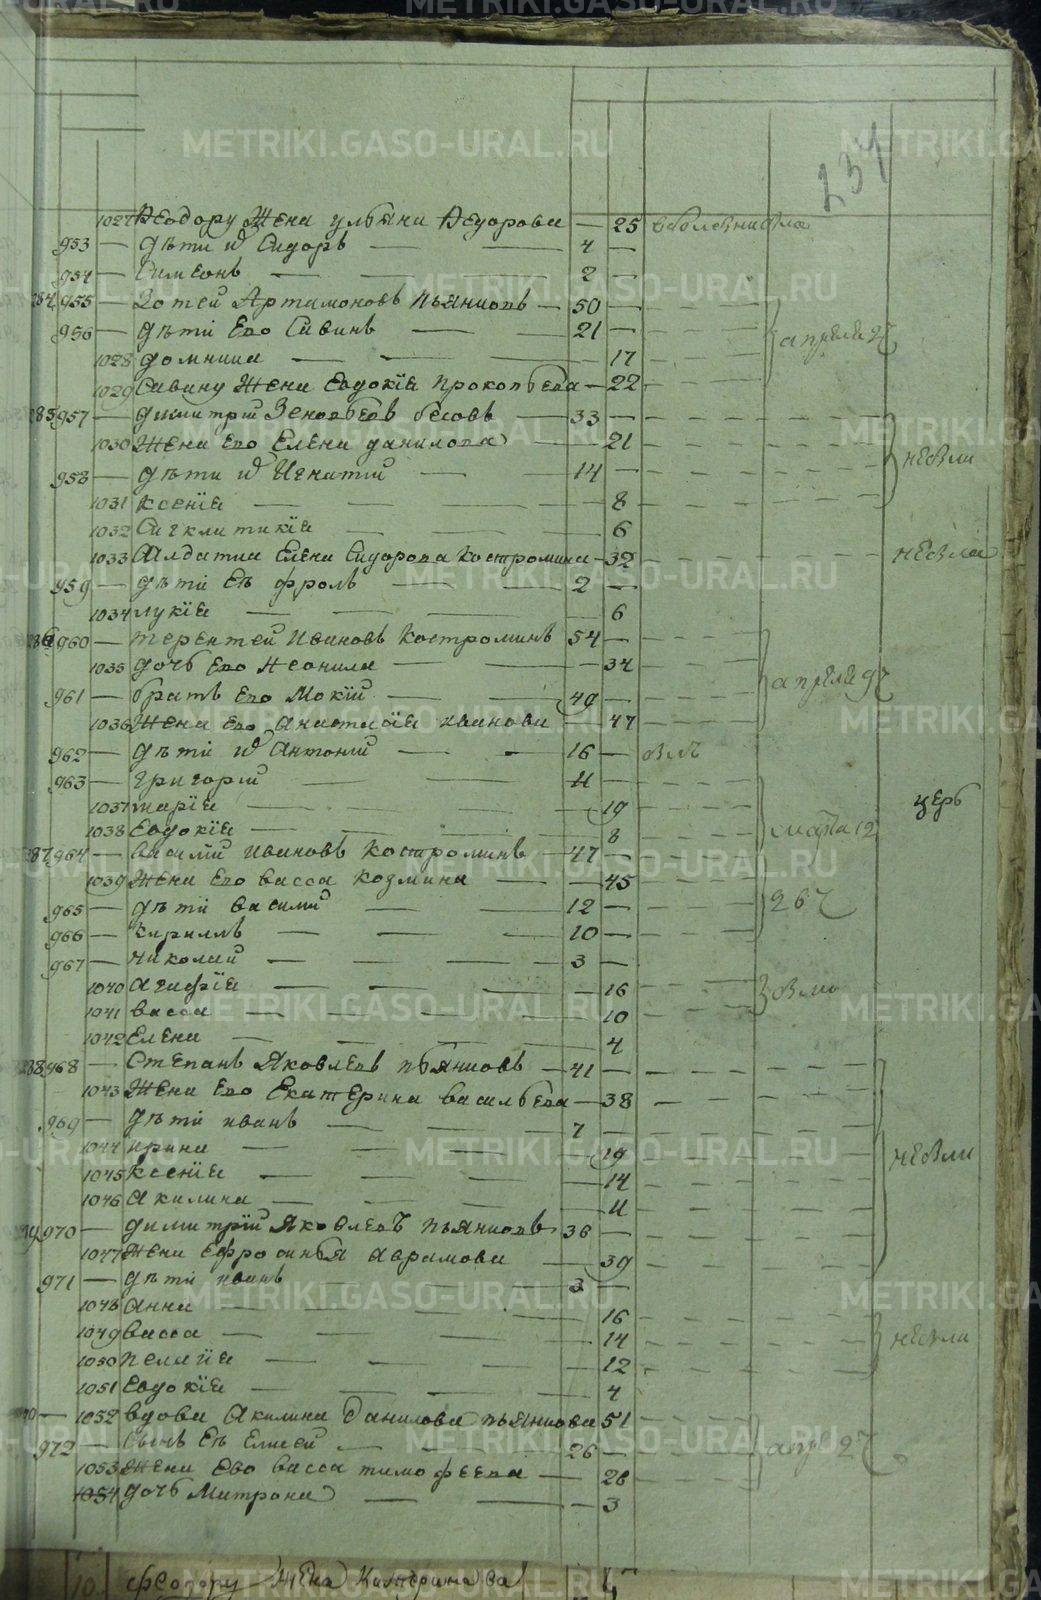 237
1027 Ѳеодору Жена Ульяна Ѳедорова — 25
953 — дѣти их Сидоръ — 4
954 — Симеонъ — 2
284 955 — Зотей Артамоновъ Пьянковъ — 50 —
956 — дѣти Его Савинъ — 21 —
1028 Домника — 17
1029 Савину Жена Евдокія Прокопьева — 22
апреля 27
285 957 — Димитрій Зеновьевъ Бѣсовъ — 33 —
1030 Жена Его Елена Данилова — 21
958 — дѣти их Игнатій — 14 —
1031 Ксенія — 8
небыли
1032 Сигклитикія — 6
1033 Салдатка Елена Сидорова Костромина — 32
небыла
959 — дѣти Еѣ Фролъ — 2 —
1034 Лукія — 6
286 960 — Терентей Ивановъ Костроминъ 54 —
1035 дочь Его Неонила — 34
961 — братъ Его Мокій — 49 —
1036 Жена Его Анастасія Иванова — 47
апреля
962 — дѣти их Антоній — 16 —
963 — Григорій — 11
1037 Марія — 19
1038 Евдокія — 8
марта 12
церь
287 964 — Василій Ивановъ Костроминъ — 47 —
1039 Жена Его Васса Козмина — 45
965 — дѣти Василій — 12 —
966 — Кириллъ — 10 —
967 — Николай — 3 —
1040 Агафія — 16
1041 Васса — 10
1042 Елена — 4
288 968 — Степанъ Яковлевъ Пьянковъ — 41 —
1043 Жена Его Екатерина Васильева — 38
969 — дѣти Иванъ — 7 —
1044 Ирина — 19
1045 Ксенія — 14
1046 Акилина — 11
небыли
970 — Димитрій Яковлевъ Пьянковъ 36 —
1047 Жена Ефросинья Аврамова — 39
971 — дѣти Иванъ — 3 —
1048 Анна — 16
1049 Васса — 14
1050 Пелагія — 12
небыли
1051 Евдокія — 4
1052 вдова Акилина Данилова Пьянкова 51
972 — Сынъ Еѣ Елисей — 26 —
1053 Жена Его Васса Тимофеева — 28
1054 дочь Матрона — 3
Феодору Жена Катерина